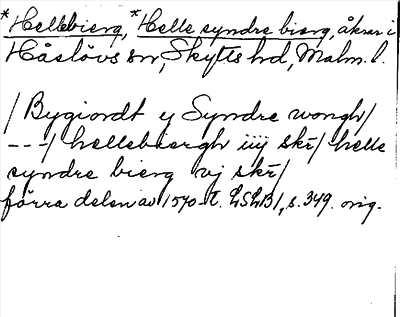 *Hellebierg, *Helle syndre bierg, åkrar i
Håslövs sn, Skytts hd, Malm. l.
/Bygiordt y Syndre wongh/
---/ hellebiergh iiij skr̄/ helle
syndre bierg vj skr̄/
förra delen av 1570-t. LSLB1, s. 349. orig.